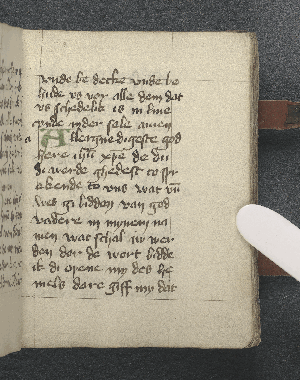 vnde be decke vnde be
hude vs vor alle dem dat
vs schedelik is in liue
vnde in der sele amen
Allergnedigeste god
here ihu xpe de du
di werde ghedest to spr
ekende to vns wat vn
wes gi bidden van god
vadere in mynem na
men wat schal iv wer
den dor de wort bidde
ik di opene my des he
mels dore giff my dat